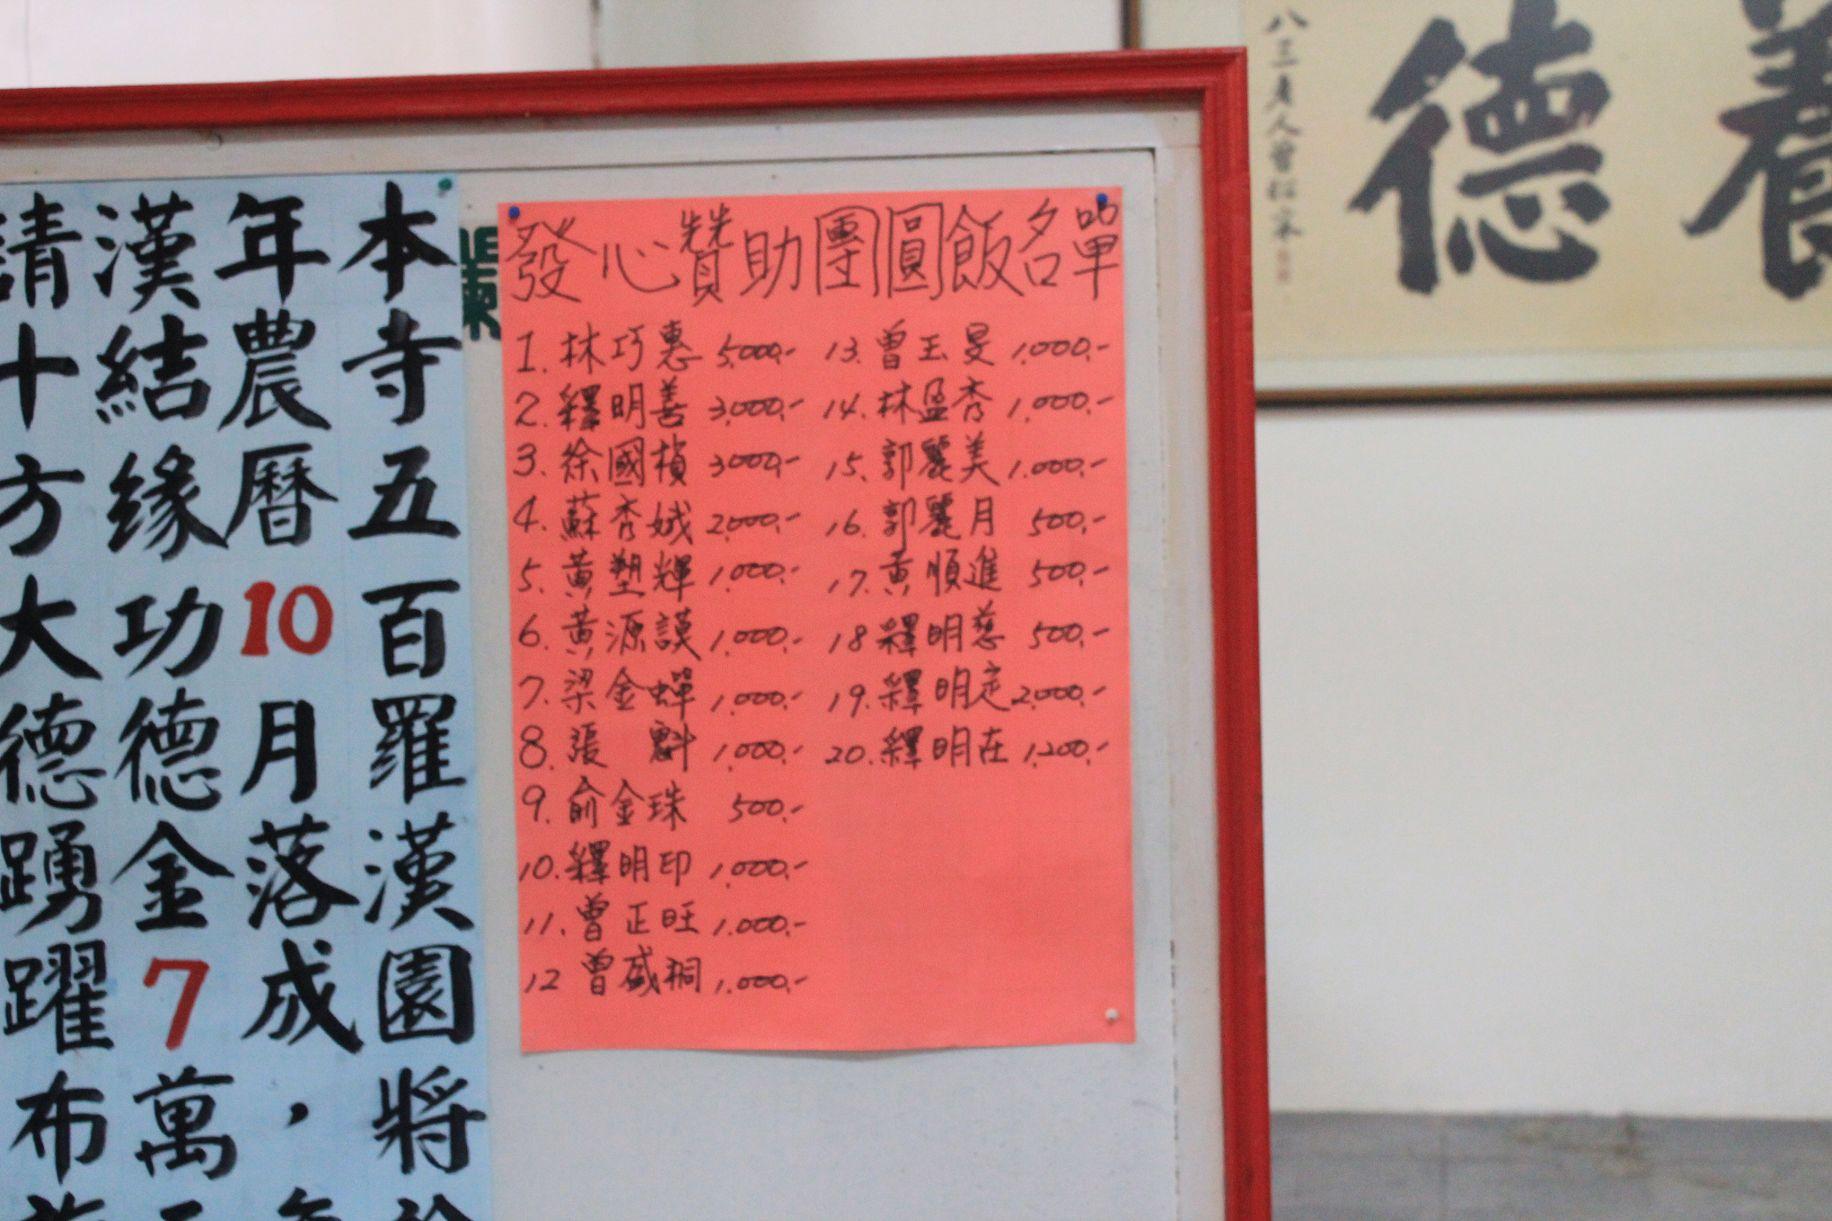 發心贊助團圓飯名單
1. 林巧惠 5,000.-
2. 釋明善 3,000.-
3. 徐國楨 3,000.-
4. 蘇秀娥 2,000.-
5. 黃塑輝 1,000.-
6. 黃源謨 1,000.-
7. 梁金蟬 1,000.-
8. 張 魁 1,000.-
9. 俞金珠 500.-
10. 釋明印 1,000.-
11. 曾正旺 1,000.-
12 曾盛桐 1,000.-
13. 曾玉旻 1,000.-
14. 林盈秀 1,000.-
15. 郭麗美 1,000.-
16. 郭麗月 500.-
17. 黃順進 500.-
18 釋明慈 500.-
19. 釋明定 2,000.-
20. 釋明在 1,200.-
本寺五百羅漢園將於
年農曆10月落成，
漢結緣功德金7萬
請十方大德踴躍布
養德